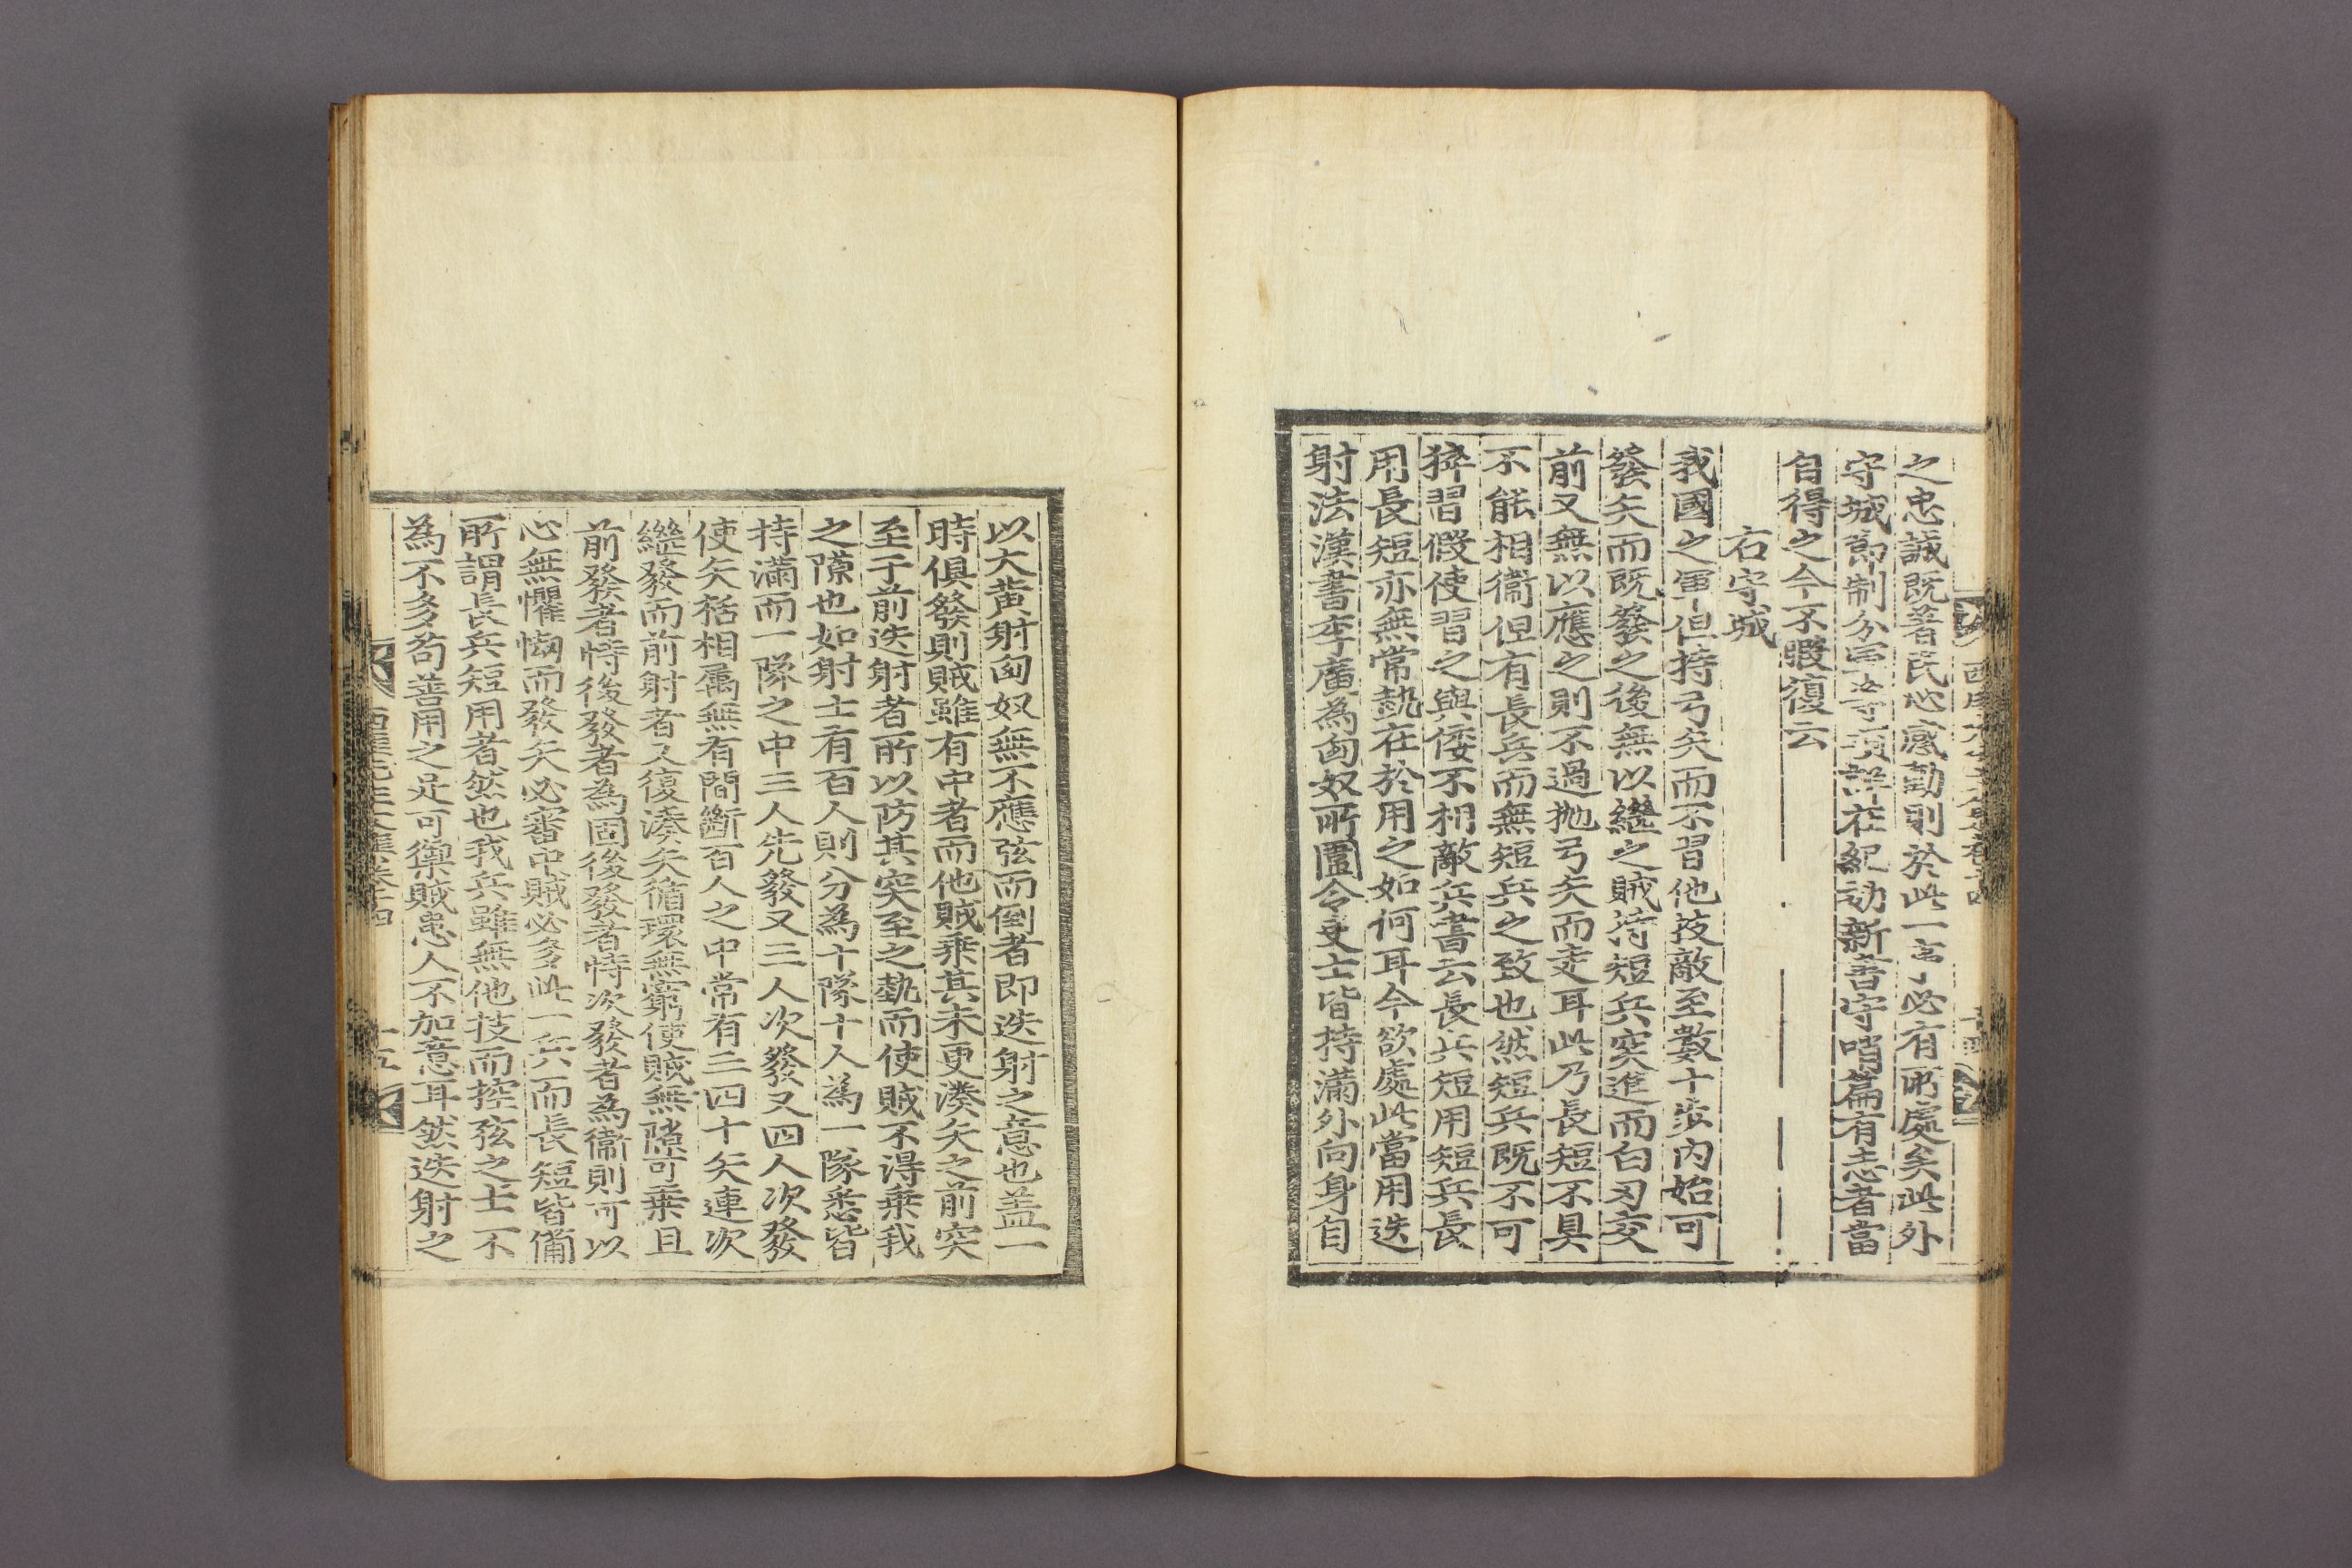 之忠誠既著民心感動則於此一言必有所處矣此外
守城節制分軍等項詳在紀効新書守哨篇有志者當
自得之今不暇復云
右守城
我國之軍但持弓矢而不習他技敵至數十步内始可
發矢而既發之後無以繼之賊持短兵突進而白刃交
前又無以應之則不過抛弓矢而走耳此乃長短不具
不能相衞但有長兵而無短兵之致也然短兵既不可
猝習假使習之與倭不相敵兵書云長兵短用短兵長
用長短亦無常埶在於用之如何耳今欲處此當用迭
射法漢書李廣為匈奴所圍令吏士皆持滿外向身自
以大黄射匈奴無不應弦而倒者即迭射之意也盖一
時俱發則賊雖有中者而他賊乘其未更湊矢之前突
至于前迭射者所以防其突至之埶而使賊不得乗我
之隙也如射士有百人則分為十隊十人為一隊悉皆
持滿而一隊之中三人先發又三人次發又四人次發
使矢栝相属無有間斷百人之中常有三四十矢連次
繼發而前射者又復湊矢循環無窮使賊無隙可乗且
前發者恃後發者為固後發者恃次發者為衞則可以
心無懼㥘而發矢必審中賊必多此一兵而長短皆備
所謂長兵短用者然也我兵雖無他技而控弦之士不
為不多苟善用之足可禦賊患人不加意耳然迭射之
西厓先生文集卷十四
十五